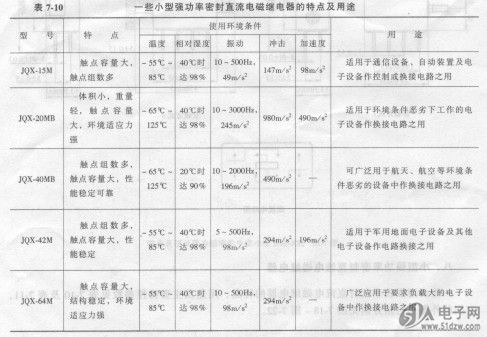 表 7-10 一些小型强功率密封直流电磁继电器的特点及用途
型 号 特 点 使用环境条件 用 途
温度 相对湿度 振动 冲击 加速度
JQX-15M 触点容量大, －55℃～ 40℃时 10～500Hz, 147m/s² 98m/s² 适用于通信设备、自动装置及电
触点组数多 85℃ 达 98% 49m/s² 子设备作控制或换接电路之用
JQX-20MB 体积小，重量 －65℃～ 40℃时 10～3000Hz, 980m/s² 490m/s² 适用于环境条件恶劣下工作的电
轻，触点容量 125℃ 达 98% 245m/s² 子设备作换接电路之用
大，环境适应力
强
JQX-40MB 触点组数多, －65℃～ 20℃时 10～2000Hz, 490m/s² — 可广泛用于航天、航空等环境条
触点容量大，性 125℃ 达 90% 196m/s² 件恶劣的设备中作换接电路之用
能稳定可靠
JQX-42M 触点组数多, －55℃～ 20℃时 5～500Hz, 294m/s² 196m/s² 适用于军用地面电子设备及其他
触点容量大，性 85℃ 达 98% 98m/s² 电子设备作电路换接之用
能稳定
JQX-64M 触点容量大, －55℃～ 40℃时 10～500Hz, 294m/s² — 广泛应用于要求负载大的电子设
结构稳定，环境 85℃ 达 98% 98m/s² 备中作换接电路之用
适应力强
51电子网
www.51dzw.com